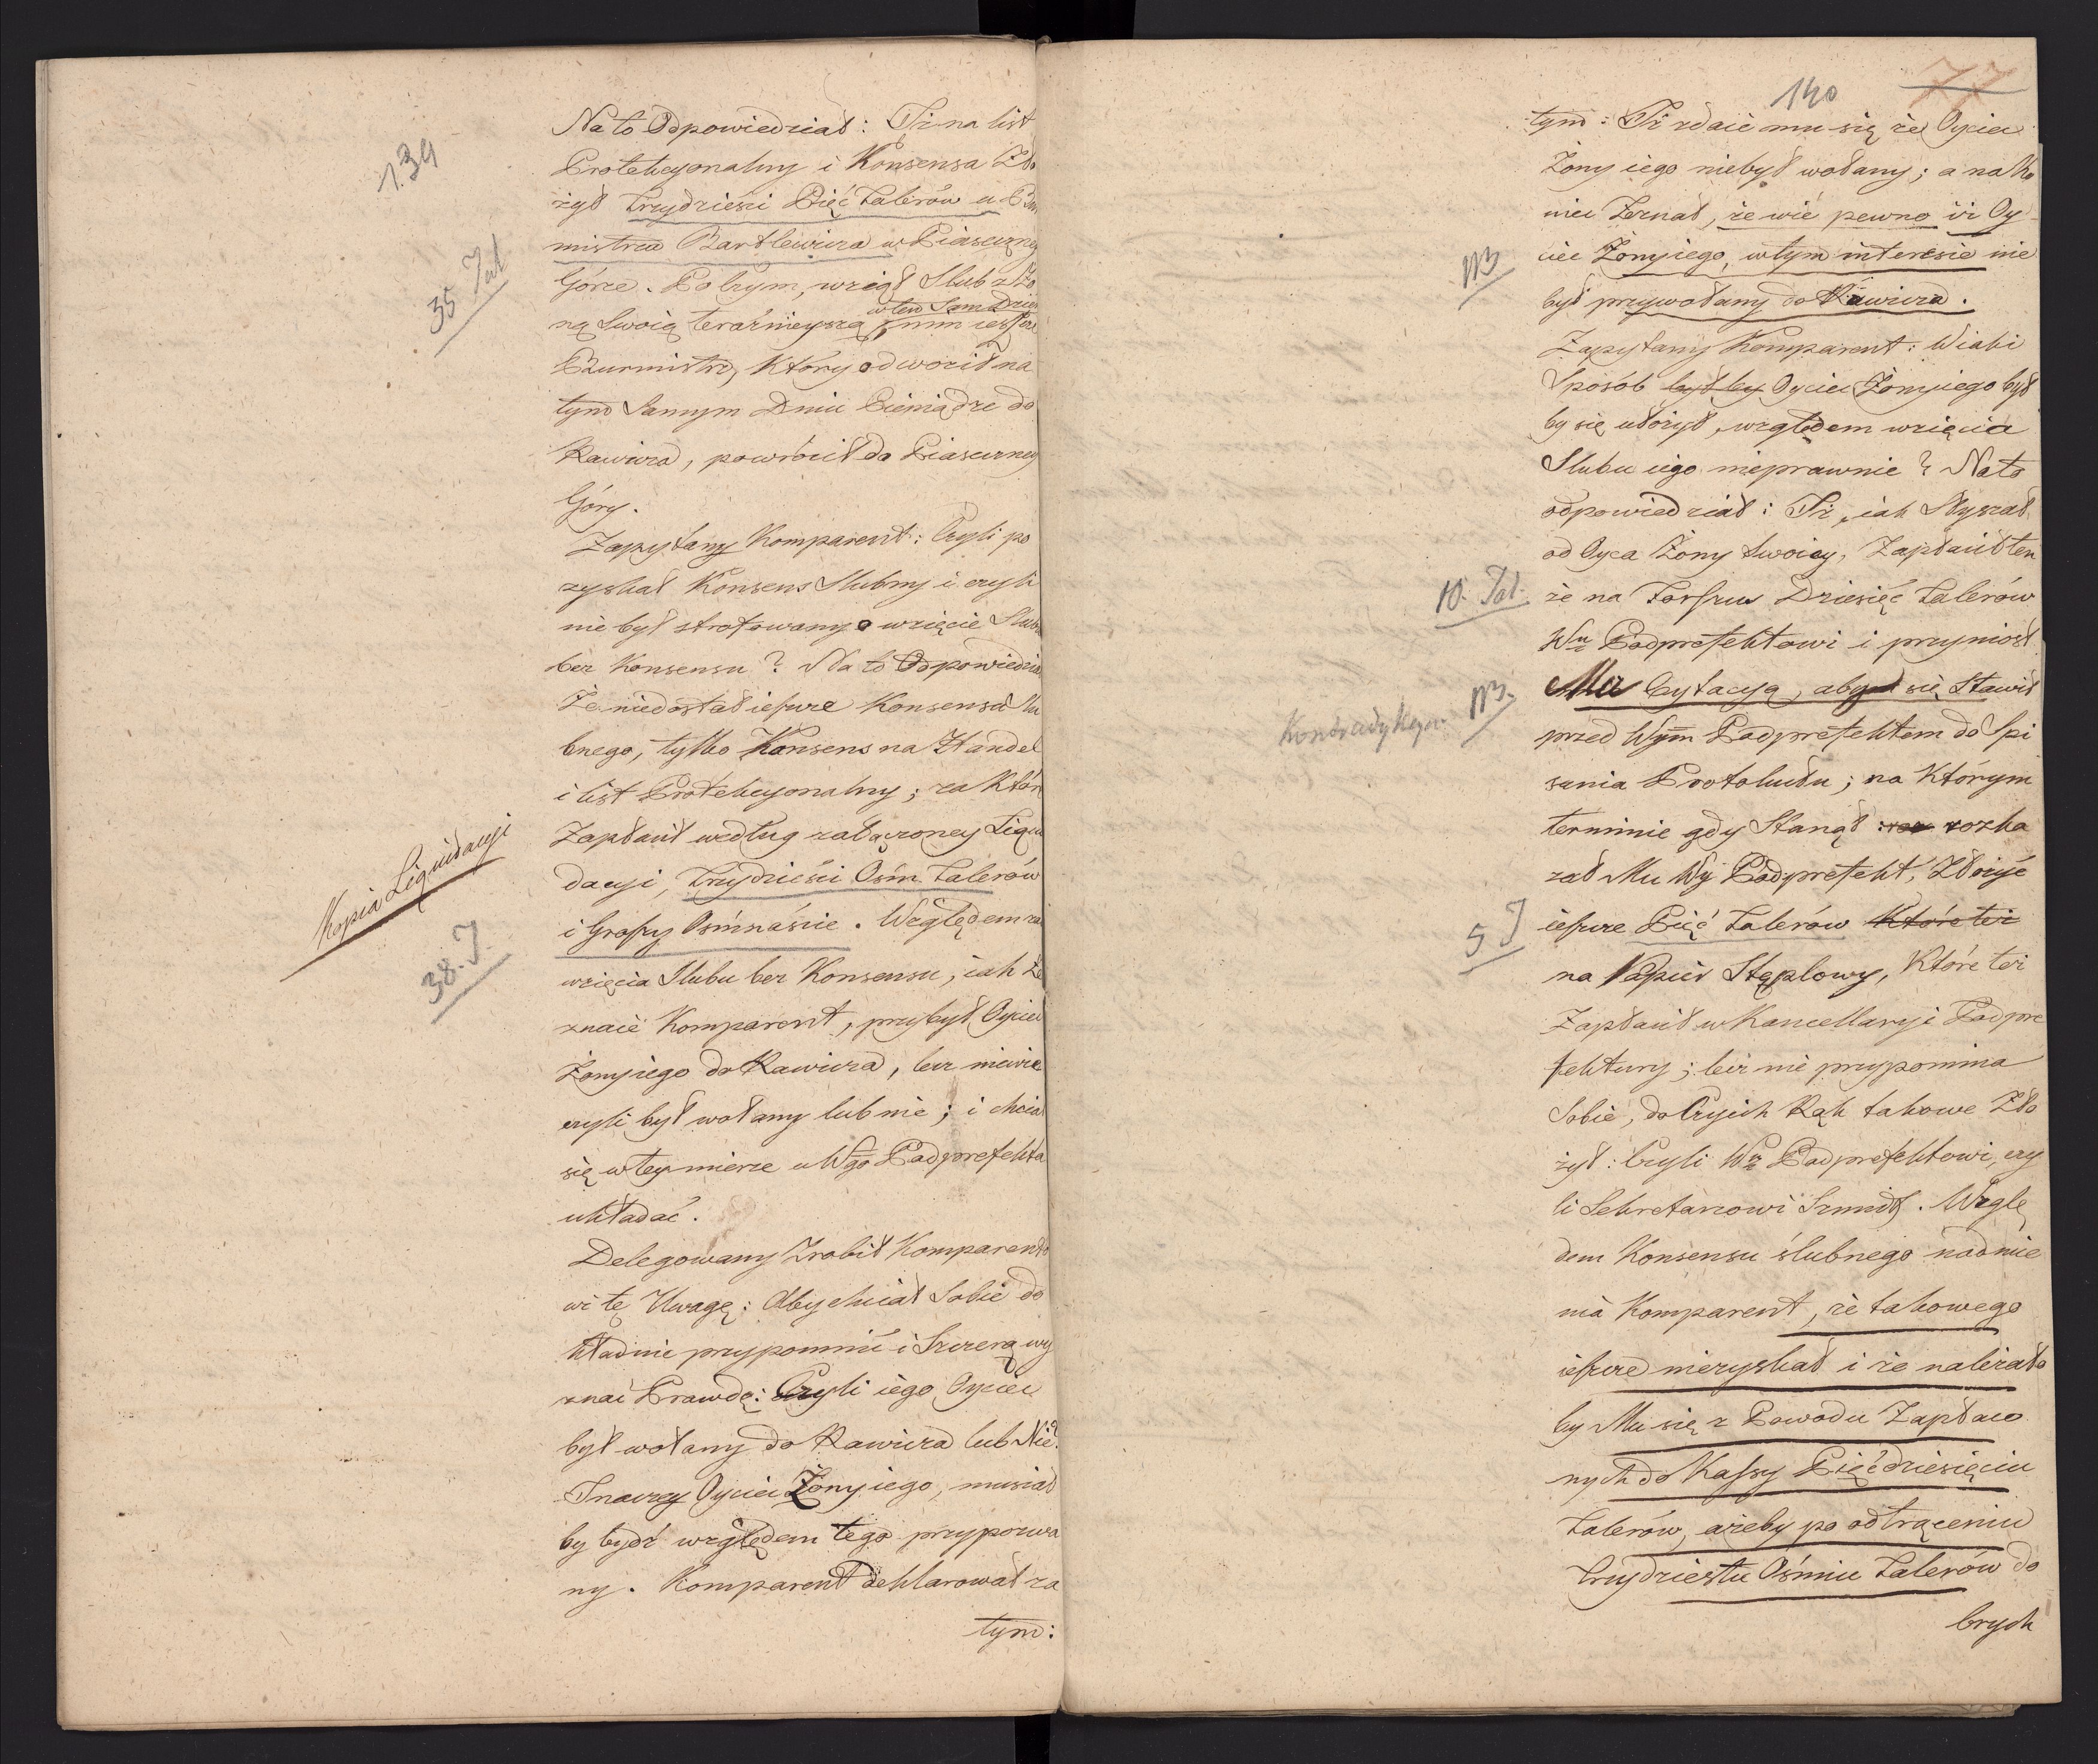 139
Na to Odpowiedział: Iż na list
Protekcyonalny i Konsensa Zło
żył trzydzieści Pięć Talerów u Bur
mistrza Bartlewicza w Piaseczney
35 Tal
Górze. Po czym, wziął Slub z Żo
w ten Sam Dzień
ną Swoią teraźnieyszą nim ieszcze
Burmistrz, Który odwoził na
tym Samym Dniu Pieniądze do
Rawicza, powrócił do Piaseczney
Góry.
Zapytany Komparent: Czyli po
zyskał Konsens Slubny i czyli
nie był strofowany o wzięcie Slubu
bez Konsensu? Na to Odpowiedział
Że niedostał ieszcze Konsensu Slu
bnego, tylko Konsens na Handel
i list Protekcyonalny; za Któr
Zapłacił według załączoney Liqui
Kopia Liquidacyi
dacyi, trzydzieści Ośm Talerów
38. T.
i Groszy Ośmnaście. Względem za
wzięcia Slubu bez Konsensu, iak Ze
znaie Komparent, przybył Oyciec
Żony iego do Rawicza, lecz niewie
czyli był wołany lub nie; i chciał
się w tey mierze u Wgo Podprefekta
układać.
Delegowany Zrobił Komparento
wi tę Uwagę: Aby chciał Sobie do
kładnie przypomnić i Szczerą wy
znać Prawdę: Czyli iego Oyciec
był wołany do Rawicza lub Nie?
Inaczey Oyciec Żony iego, musiał
by bydź względem tego przypozwa
ny. Komparent deklarował za
tym:
140
77
tym: Iż zdaie mu się że Oyciec
Żony iego niebył wołany; a na Ko
niec Zeznał, że wie pewno iż Oy
NB
ciec Żony iego, w tym interesie nie
był przywołany do Rawicza.
Zapytany Komparent: W iaki
Sposób byłby Oyciec Żony iego był
by się ułożył, względem wzięcia
Slubu iego nieprawnie? Na to
odpowiedział: Iż, iak Słyszał
od Oyca Żony Swoiey, Zapłacił ten
10. Tal.
że na Forszus Dziesięć Talerów
Wu Podprefektowi i przyniósł
Kontradykcya NB.
Mu Cytacyą, aby się Stawił
przed Wym Podprefektem do Spi
sania Protokułu; na Którym
terminie gdy Stanął: roz rozka
zał Mu Wy Podprefekt, Złożyć
5 T
ieszcze Pięć Talerów Które też
na Papier Stęplowy, Które też
Zapłacił w Kancellaryi Podpre
fektury; lecz nie przypomina
Sobie, do Czyich Rąk takowe Zło
żył: Czyli Wu Podprefektowi, czy
li Sekretarzowi Szmidt. Wzglę
dem Konsensu ślubnego nadmie
nia Komparent, że takowego
ieszcze niezyskał i że należało
by Mu się z Powodu Zapłaco
nych do Kassy Pięćdziesięciu
Talerów, ażeby po odtrąceniu
trzydziestu Ośmiu Talerów do
brych